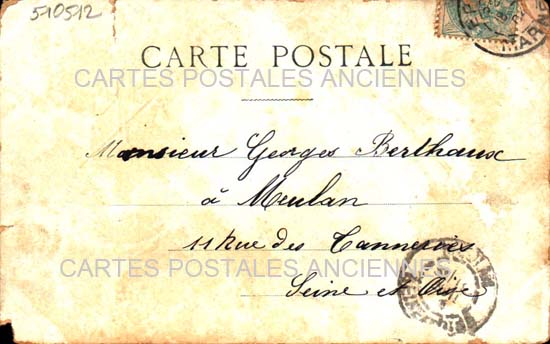 510512
MARNE
CARTE POSTALE
CARTES POSTALES ANCIENNES
Monsieur Georges Berthaux
à Meulan
11 Rue des Tanneries
CARTES POSTALES ANCIENNES
Seine et Oise